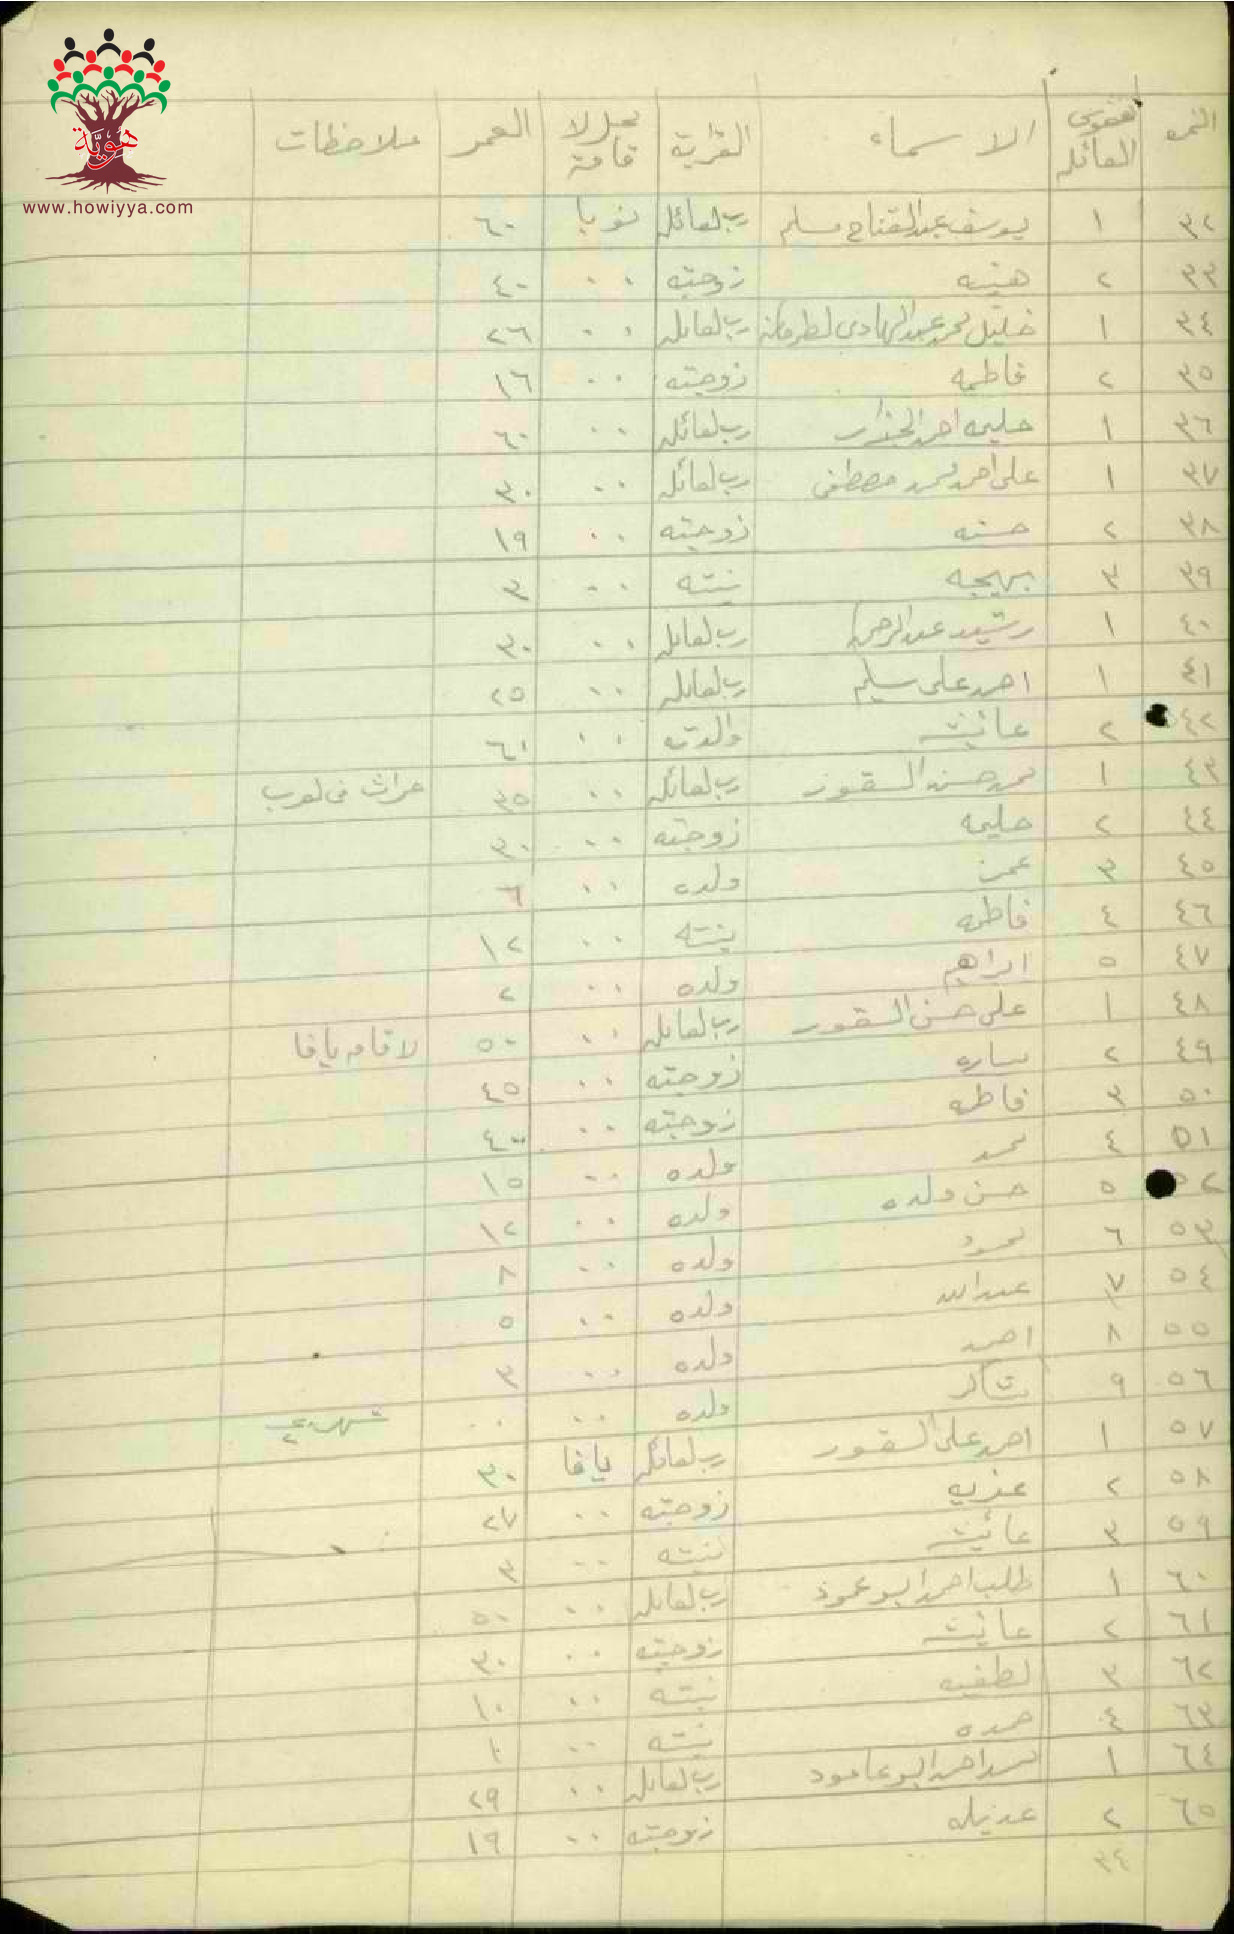 هوية
www.howiyya.com
النمره نفوس العائله الاسماء القرابه محل الاقامة العمر ملاحظات
٣٢ ١ يوسف عبدالفتاح مسلم رب لعائله نوبا ٦٠
٣٣ ٢ هنيه زوجته ٠٠ ٤٠
٣٤ ١ خليل محمد عبدالهادي رب لعائله ٠٠ ٢٦
٣٥ ٢ فاطمه زوجته ٠٠ ١٦
٣٦ ١ حليمه احمد رب لعائله ٠٠ ٦٠
٣٧ ١ علي احمد محمد مصطفى رب لعائله ٠٠ ٣٠
٣٨ ٢ حسنه زوجته ٠٠ ١٩
٣٩ ٣ بهيجه بنته ٠٠ ٣
٤٠ ١ رشيد عبدالرحمن رب لعائله ٠٠ ٣٠
٤١ ١ احمد علي سليم رب لعائله ٠٠ ٢٥
٤٢ ٢ عائشه والدته ٠٠ ٦١
٤٣ ١ محمد حسن السقور رب لعائله ٠٠ ٣٥ حراث في لعرب
٤٤ ٢ حليمه زوجته ٠٠ ٣٠
٤٥ ٣ ولده ٠٠ ٦
٤٦ ٤ فاطمه بنته ٠٠ ١٢
٤٧ ٥ ابراهيم ولده ٠٠ ٢
٤٨ ١ علي حسن السقور رب لعائله ٠٠ ٥٠ لاقامه يافا
٤٩ ٢ ساره زوجته ٠٠ ٤٥
٥٠ ٣ فاطمه زوجته ٠٠ ٤٠
٥١ ٤ محمد ولده ٠٠ ١٥
٥٢ ٥ حسن ولده ولده ٠٠ ١٢
٥٣ ٦ محمود ولده ٠٠ ٨
٥٤ ٧ عبدالله ولده ٠٠ ٥
٥٥ ٨ احمد ولده ٠٠ ٣
٥٦ ٩ شاكر ولده ٠٠ ٠٠
٥٧ ١ احمد علي السقور رب لعائله يافا ٣٠
٥٨ ٢ عزيه زوجته ٠٠ ٢٧
٥٩ ٣ عائشه بنته ٠٠ ٣
٦٠ ١ طلب احمد ابو عمود رب لعائله ٠٠ ٥٠
٦١ ٢ عائشه زوجته ٠٠ ٣٠
٦٢ ٣ لطفيه بنته ٠٠ ١٠
٦٣ ٤ حمده بنته ٠٠ ١
٦٤ ١ محمد احمد ابو عامود رب لعائله ٠٠ ٢٩
٦٥ ٢ عزيله زوجته ٠٠ ١٩
٣٤